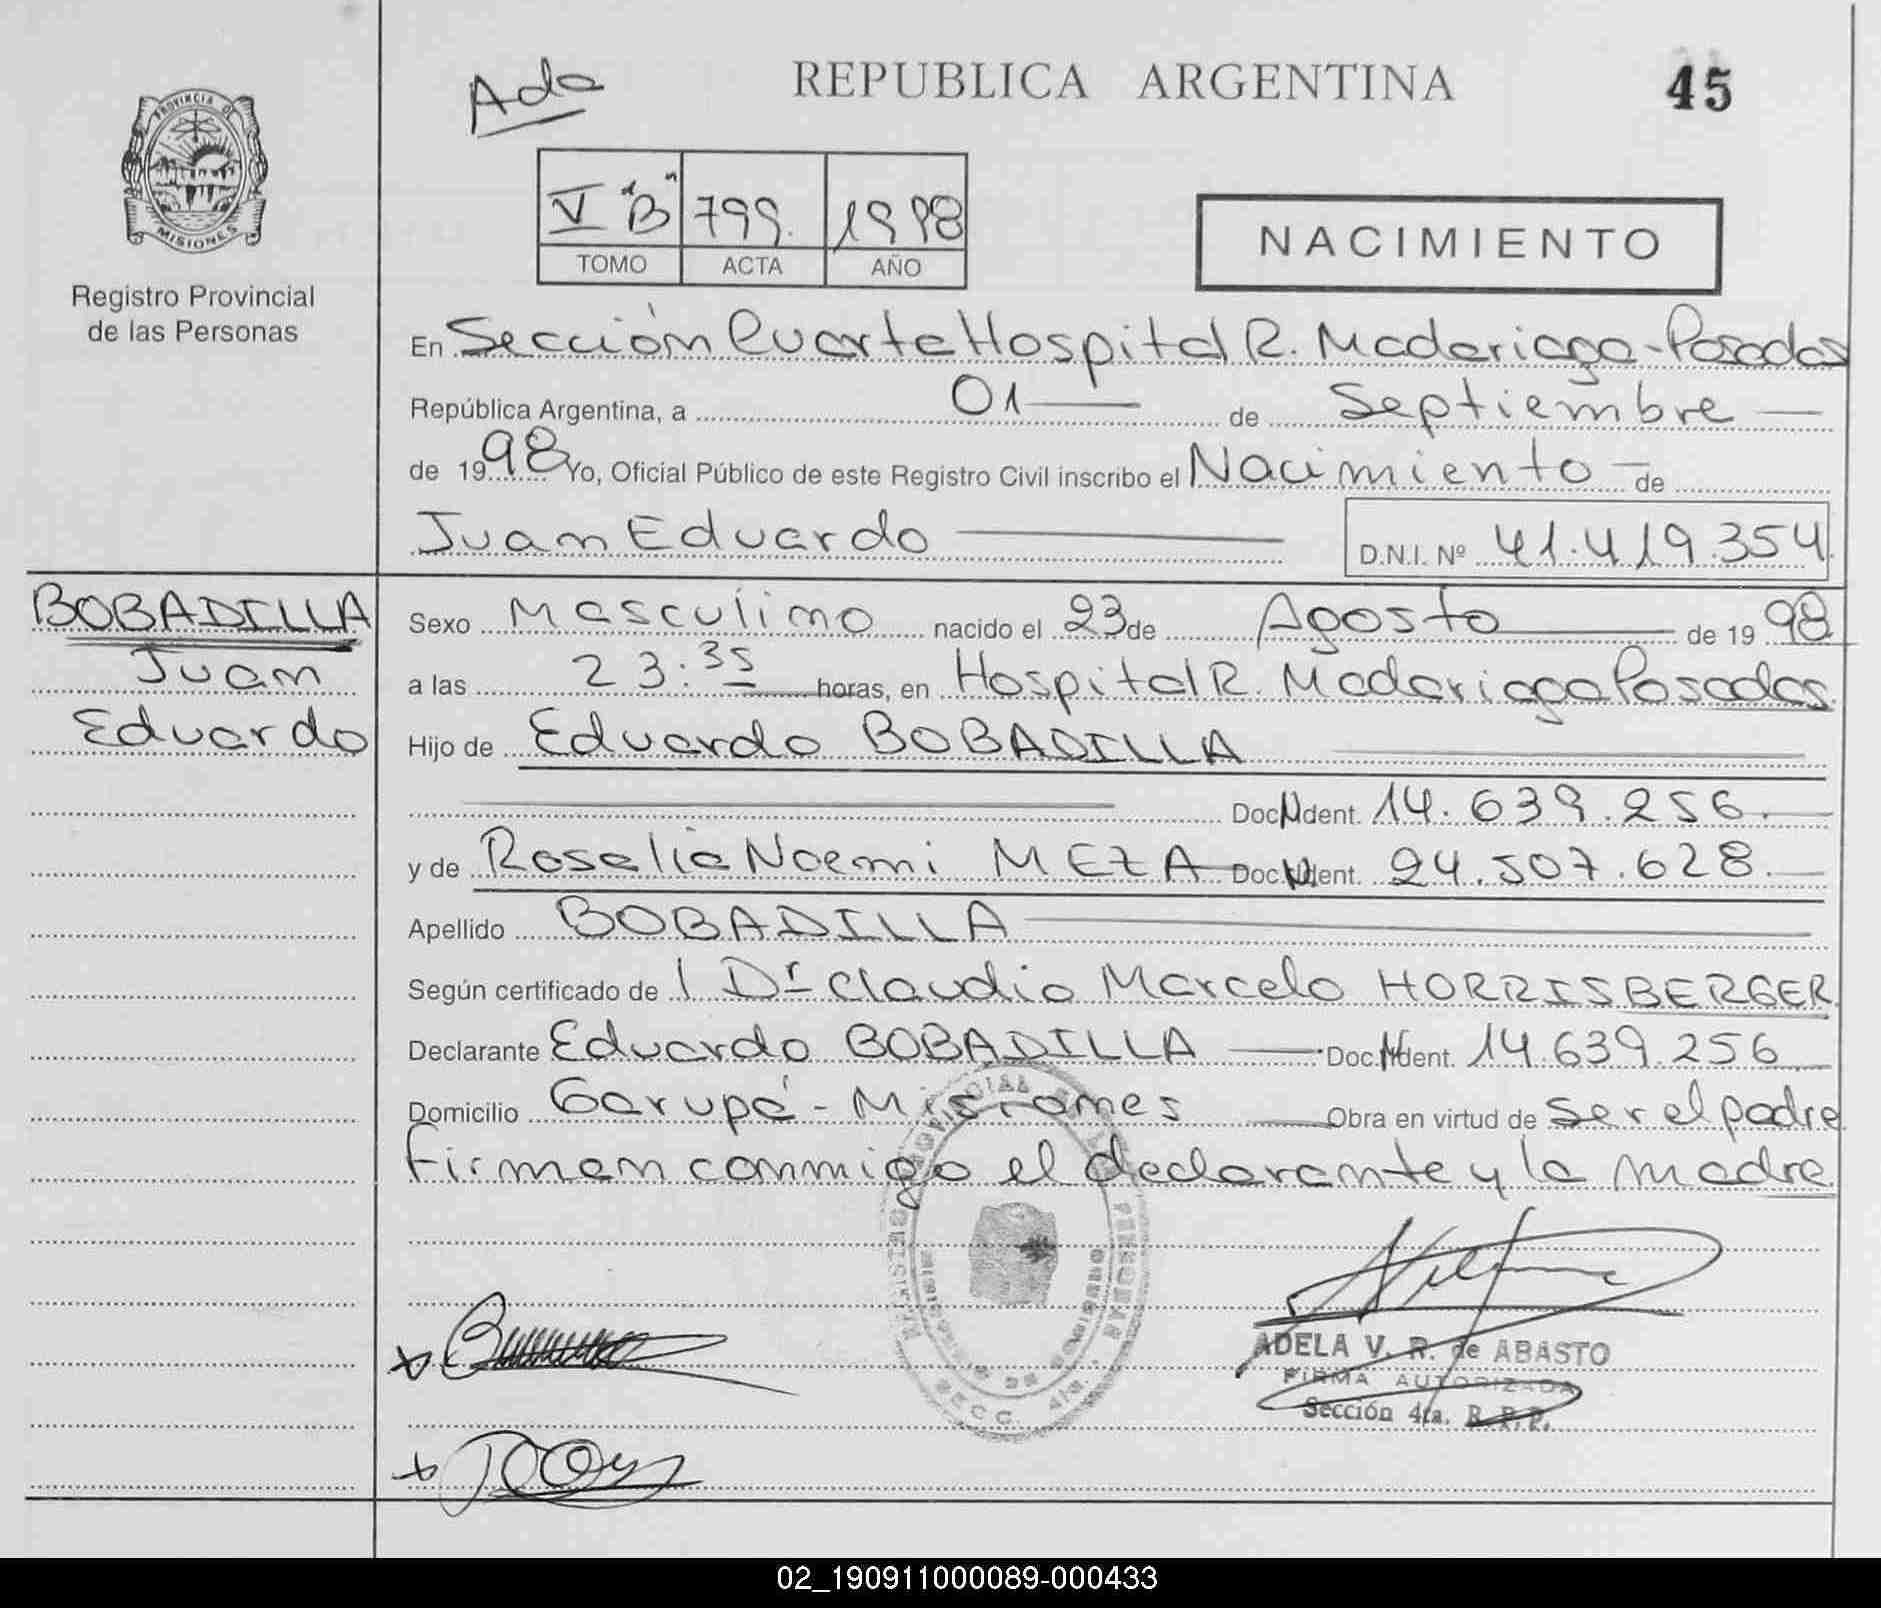 Ada
REPUBLICA ARGENTINA
45
PROVINCIA DE
MISIONES
Registro Provincial
de las Personas
V "B" 799. 1998
TOMO ACTA AÑO
NACIMIENTO
En Sección Cuarta Hospital R. Madariaga - Posadas
República Argentina, a 01 de Septiembre
de 1998 Yo, Oficial Público de este Registro Civil inscribo el Nacimiento de
Juan Eduardo D.N.I. Nº 41.419.354
BOBADILLA
Juan
Eduardo
Sexo Masculino nacido el 23 de Agosto de 1998
a las 23:35 horas, en Hospital R. Madariaga Posadas
Hijo de Eduardo BOBADILLA
Doc. Ident. 14.639.256.
y de Rosalia Noemi MEZA Doc. Ident. 24.507.628.
Apellido BOBADILLA
Según certificado de l Dr Claudio Marcelo HORRISBERGER
Declarante Eduardo BOBADILLA Doc. Ident. 14.639.256
Domicilio Garupá - Misiones Obra en virtud de ser el padre
Firman conmigo el declarante y la madre
ADELA V. R. de ABASTO
FIRMA AUTORIZADA
Sección 4ta. R. P. P.
SECC. 4ta.
02_190911000089-000433